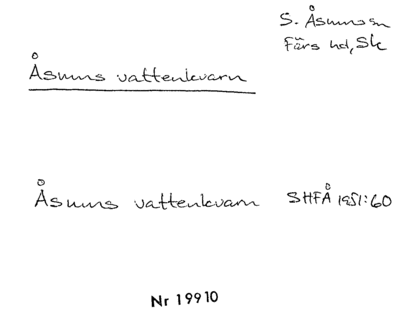 S. Åsum sn
Färs hd, Sk
Åsums vattenkvarn
Åsums vattenkvarn SHFÅ 1951:60
Nr 19910